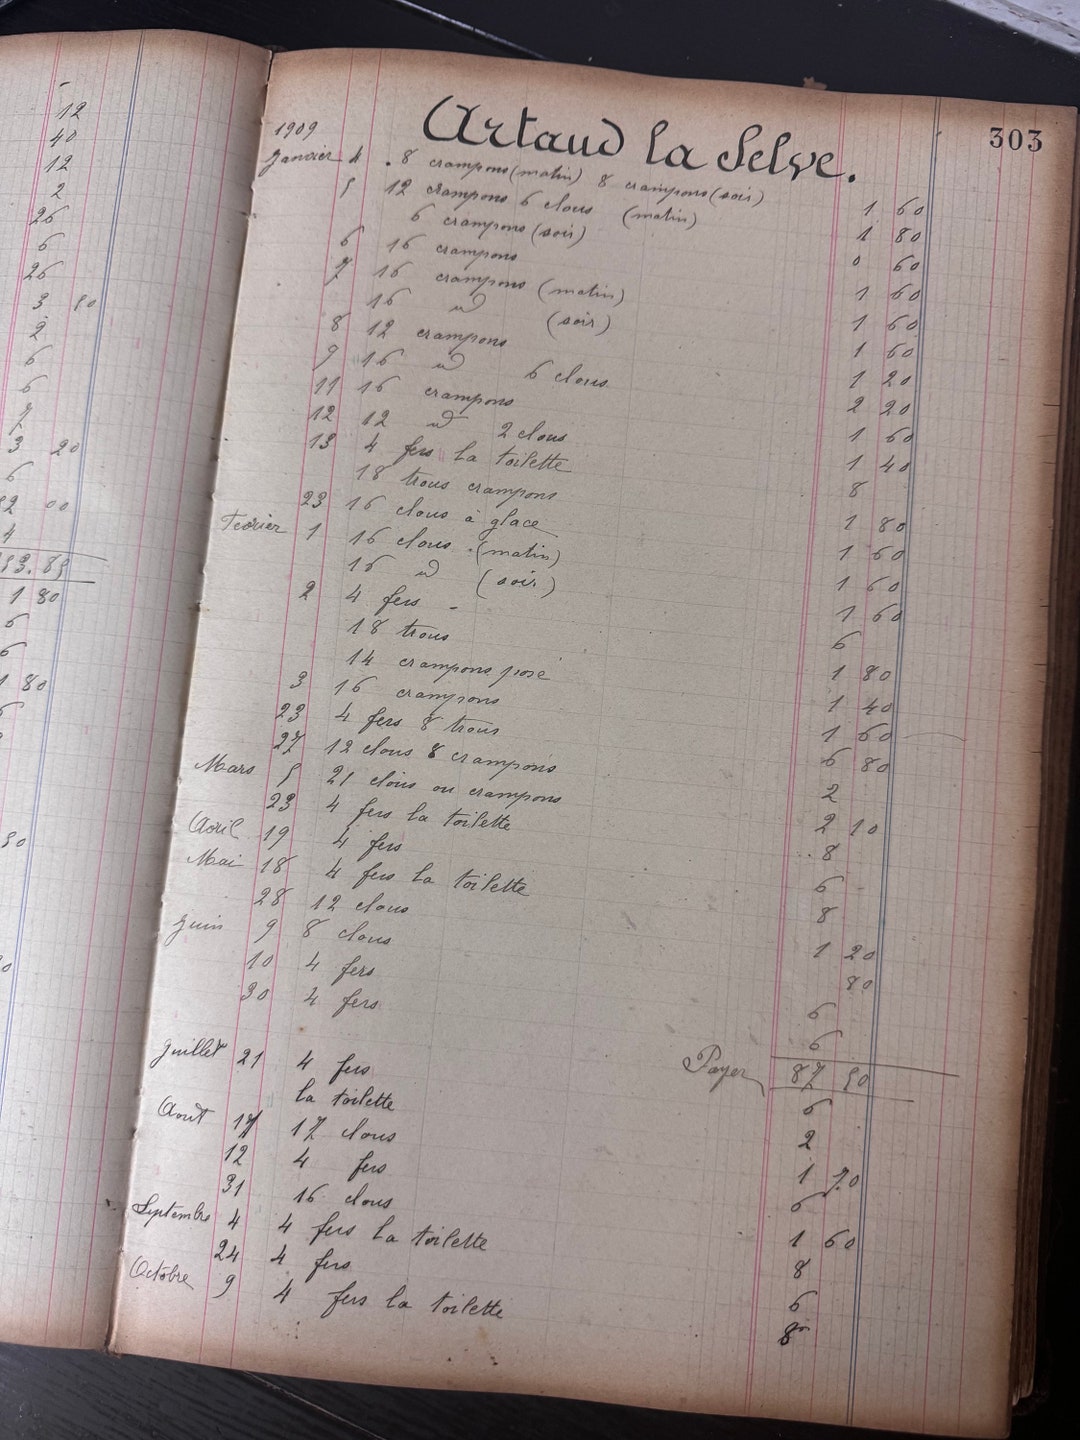 12
40
12
2
26
6
26
3 50
2
6
6
7
3 20
6
00
4
1 80
6
6
1 80
303
Artaud la Selve.
1909
Janvier 4 8 crampons (matin) 8 crampons (soir) 1 60
5 12 crampons 6 clous (matin) 1 80
6 crampons (soir) 0 60
6 16 crampons 1 60
7 16 crampons (matin) 1 60
16 id (soir) 1 60
8 12 crampons 1 20
9 16 id 6 clous 2 20
11 16 crampons 1 60
12 12 id 2 clous 1 40
13 4 fers la toilette 8
18 trous crampons 1 80
23 16 clous à glace 1 60
Fevrier 1 16 clous (matin) 1 60
16 id (soir) 1 60
2 4 fers 6
18 trous 1 80
14 crampons posé 1 40
3 16 crampons 1 60
23 4 fers 8 trous 6 80
27 12 clous 8 crampons 2
Mars 5 21 clous ou crampons 2 10
23 4 fers la toilette 8
Avril 19 4 fers 6
Mai 18 4 fers la toilette 8
28 12 clous 1 20
Juin 9 8 clous 80
10 4 fers 6
30 4 fers 6
Payer 87 50
Juillet 21 4 fers 6
la toilette 2
Aout 17 clous 1 70
12 4 fers 6
31 16 clous 1 60
Septembre 4 4 fers la toilette 8
24 4 fers 6
Octobre 9 4 fers la toilette 8